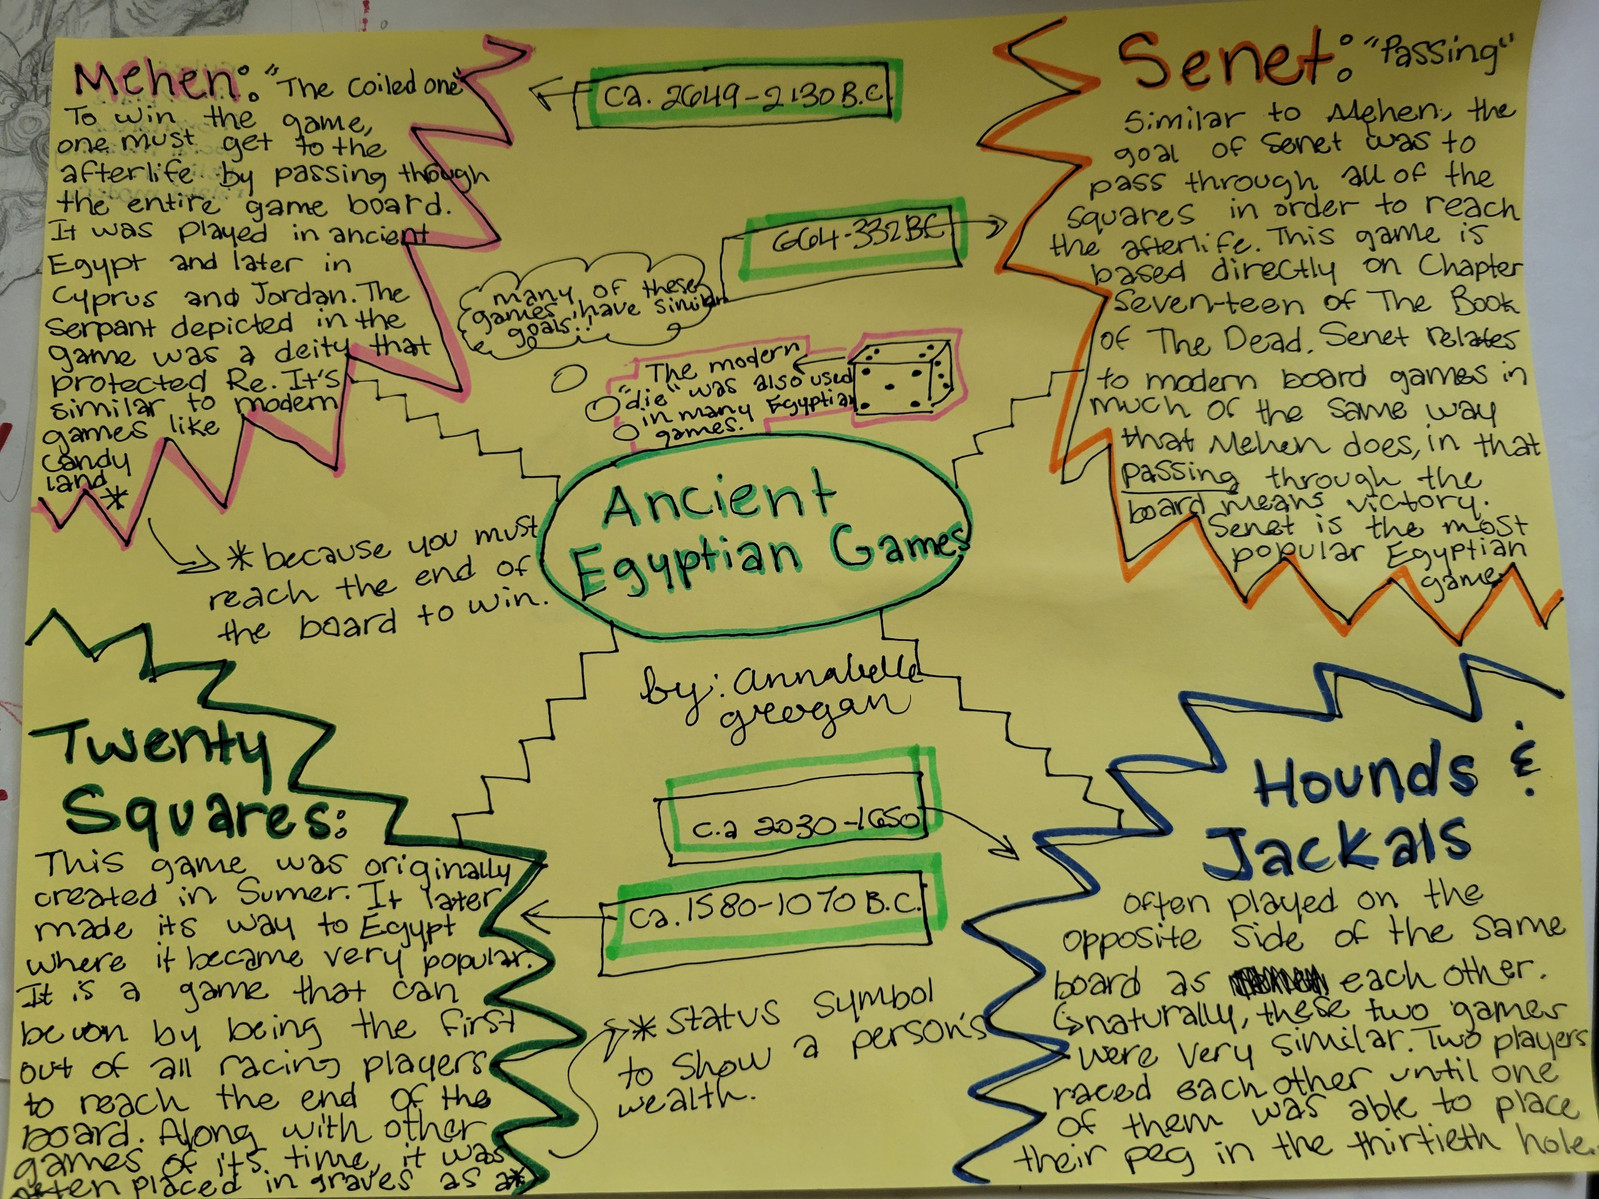 Mehen: "The Coiled one"
To win the game,
one must get to the
afterlife by passing though
the entire game board.
It was played in ancient
Egypt and later in
Cyprus and Jordan. The
Serpant depicted in the
game was a deity that
protected Re. It's
similar to modern
games like
candy
land *
* because you must
reach the end of
the board to win.
ca. 2649-2130 B.C.
664-332 BC
many of these
games have similar
goals!!
The modern
"die" was also used
in many Egyptian
games!
Ancient
Egyptian Games
by: Annabelle
greogan
Senet: "Passing"
Similar to Mehen, the
goal of Senet was to
pass through all of the
squares in order to reach
the afterlife. This game is
based directly on Chapter
Seven-teen of The Book
of The Dead. Senet relates
to modern board games in
much of the same way
that Mehen does, in that
passing through the
board means victory.
Senet is the most
popular Egyptian
game.
Twenty
Squares:
This game was originally
created in Sumer. It later
made its way to Egypt
where it became very popular.
It is a game that can
be won by being the first
out of all racing players
to reach the end of the
board. Along with other
games of its time, it was
often placed in graves as a*
c.a 2030-1650
ca. 1580-1070 B.C.
* status symbol
to show a person's
wealth.
Hounds &
Jackals
often played on the
opposite side of the same
board as each other.
naturally, these two games
were very similar. Two players
raced each other until one
of them was able to place
their peg in the thirtieth hole.